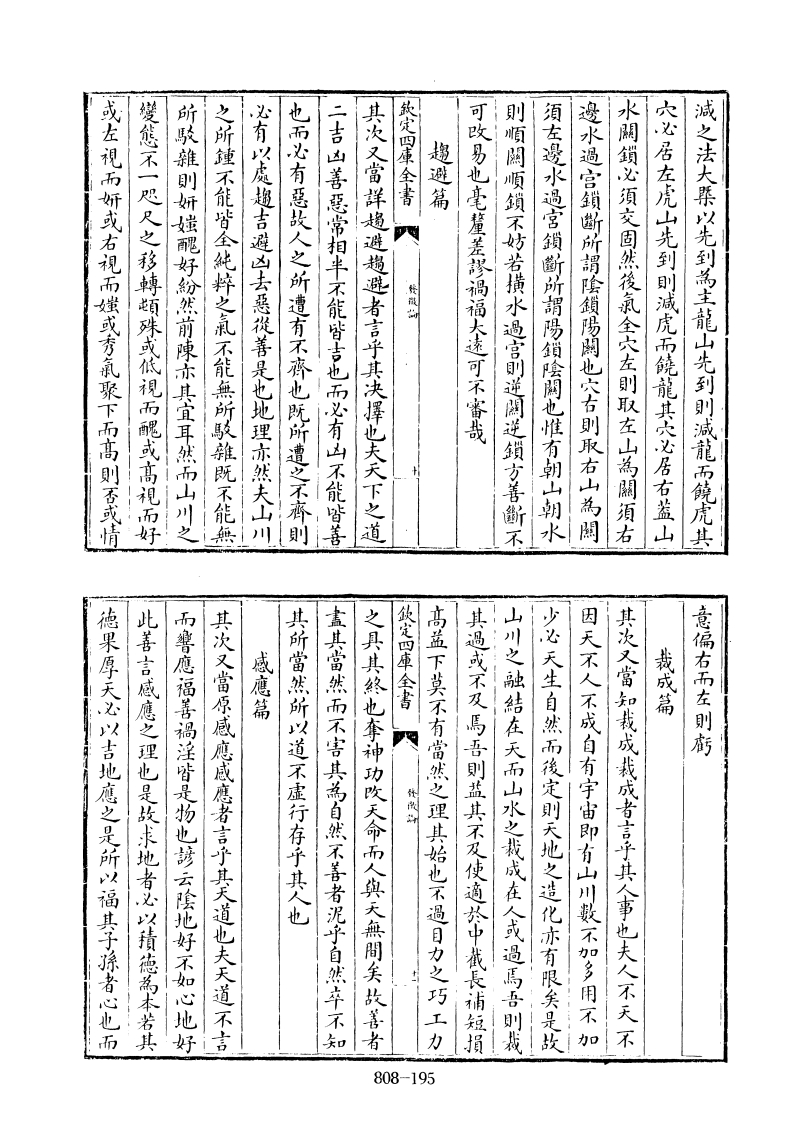 減之法大槩以先到為主龍山先到則減龍而饒虎其
穴必居左虎山先到則減虎而饒龍其穴必居右葢山
水關鎖必須交固然後氣全穴左則取左山為關須右
邊水過宫鎖斷所謂陰鎖陽關也穴右則取右山為關
須左邊水過宫鎖斷所謂陽鎖陰關也惟有朝山朝水
則順關順鎖不妨若横水過宫則逆關逆鎖方善斷不
可改易也毫釐差謬禍福大遠可不審哉
趨避篇
欽定四庫全書
發微論
十
其次又當詳趨避趨避者言乎其決擇也夫天下之道
二吉凶善惡常相半不能皆吉也而必有凶不能皆善
也而必有惡故人之所遭有不齊也既所遭之不齊則
必有以處趨吉避凶去惡從善是也地理亦然夫山川
之所鍾不能皆全純粹之氣不能無所駁雜既不能無
所駁雜則妍媸醜好紛然前陳亦其宜耳然而山川之
變態不一咫尺之移轉頓殊或低視而醜或髙視而好
或左視而妍或右視而媸或秀氣聚下而髙則否或情
意偏右而左則虧
裁成篇
其次又當知裁成裁成者言乎其人事也夫人不天不
因天不人不成自有宇宙即有山川數不加多用不加
少必天生自然而後定則天地之造化亦有限矣是故
山川之融結在天而山水之裁成在人或過焉吾則裁
其過或不及焉吾則益其不及使適於中截長補短損
髙益下莫不有當然之理其始也不過目力之巧工力
欽定四庫全書
發微論
十一
之具其終也奪神功改天命而人與天無間矣故善者
盡其當然而不害其為自然不善者泥乎自然卒不知
其所當然所以道不虛行存乎其人也
感應篇
其次又當原感應感應者言乎其天道也夫天道不言
而響應福善禍淫皆是物也諺云陰地好不如心地好
此善言感應之理也是故求地者必以積德為本若其
德果厚天必以吉地應之是所以福其子孫者心也而
808-195